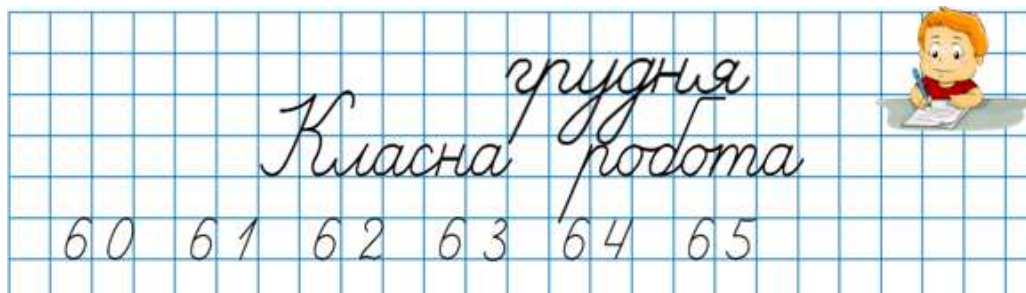 грудня
Класна робота
60 61 62 63 64 65